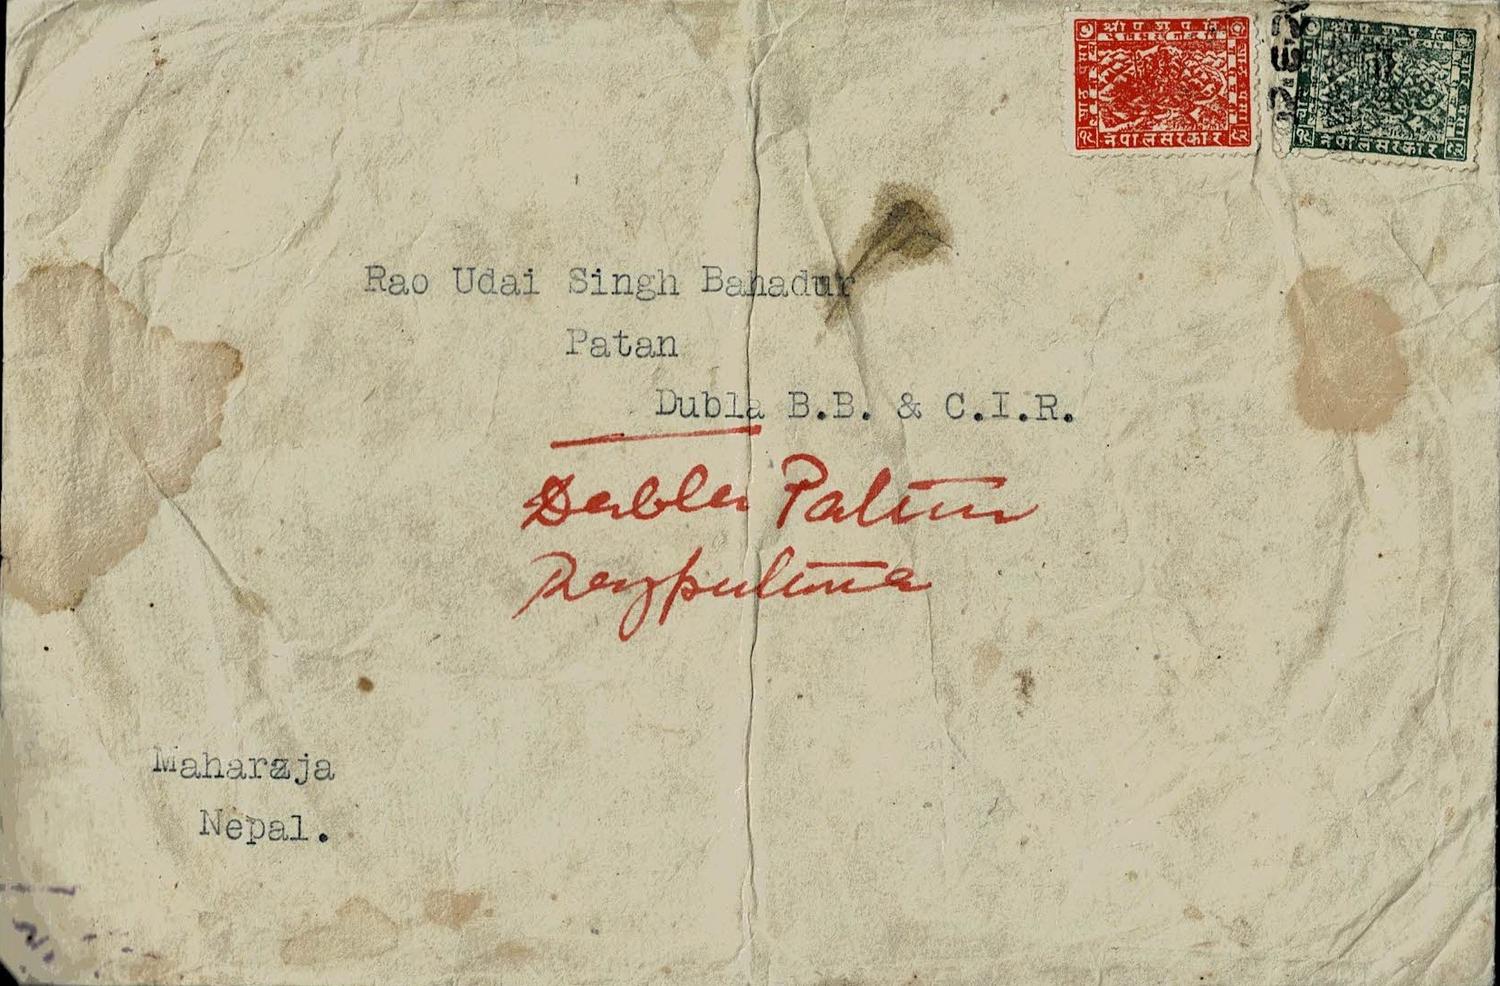 श्री प शु प ति
नेपाल सरकार
श्री प शु प ति
नेपाल सरकार
Rao Udai Singh Bahadur
Patan
Dubla B.B. & C.I.R.
Dabla Patan
Rajputana
Maharaja
Nepal.